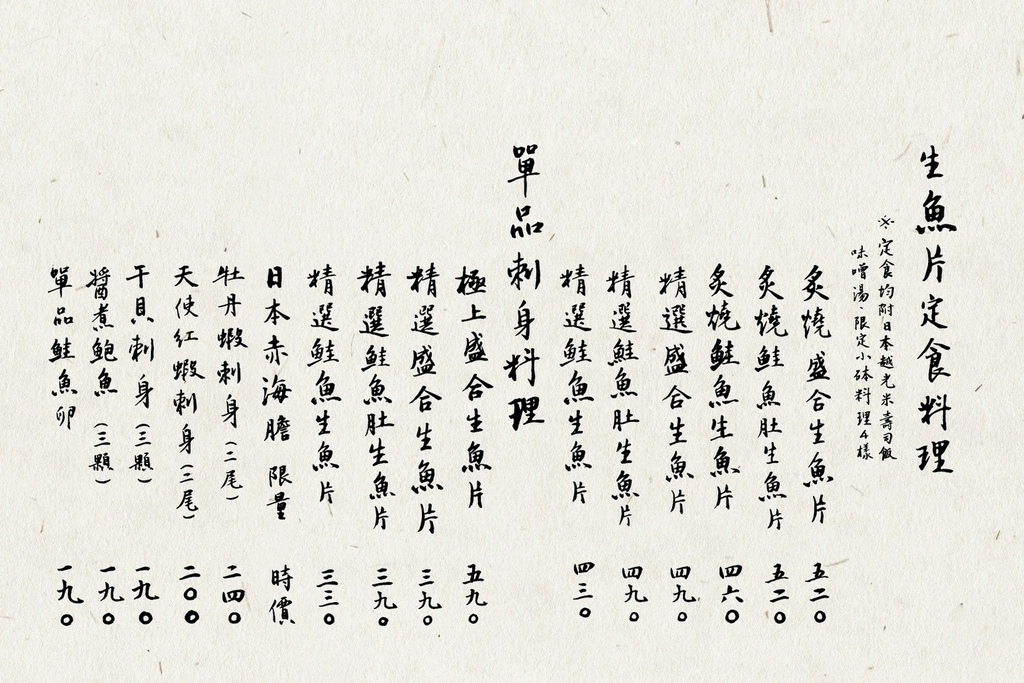 生魚片定食料理
※定食均附日本越光米壽司飯
味噌湯·限定小砵料理4樣
炙燒盛合生魚片 五二〇
炙燒鮭魚肚生魚片 五二〇
炙燒鮭魚生魚片 四六〇
精選盛合生魚片 四九〇
精選鮭魚肚生魚片 四九〇
精選鮭魚生魚片 四三〇
單品刺身料理
極上盛合生魚片 五九〇
精選盛合生魚片 三九〇
精選鮭魚肚生魚片 三九〇
精選鮭魚生魚片 三三〇
日本赤海膽 限量 時價
牡丹蝦刺身(二尾) 二四〇
天使紅蝦刺身(二尾) 二〇〇
干貝刺身(三顆) 一九〇
醬煮鮑魚(三顆) 一九〇
單品鮭魚卵 一九〇